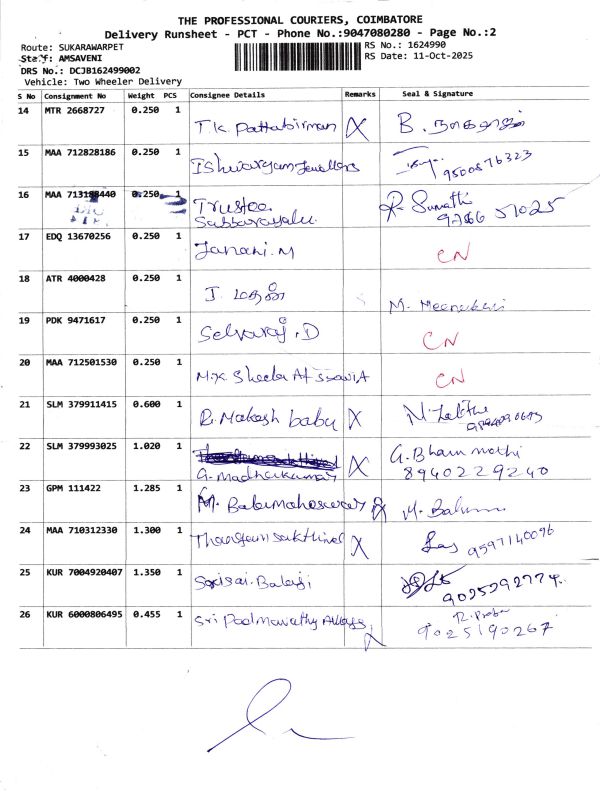 THE PROFESSIONAL COURIERS, COIMBATORE
Delivery Runsheet - PCT - Phone No.:9047080280 - Page No.:2
Route: SUKARAWARPET
RS No.: 1624990
Staff: AMSAVENI
RS Date: 11-Oct-2025
DRS No.: DCJB162499002
Vehicle: Two Wheeler Delivery
S No Consignment No Weight PCS Consignee Details Remarks Seal & Signature
14 MTR 2668727 0.250 1 T.K. Pattabirman X B.
15 MAA 712828186 0.250 1 Ishwaryam Jewellers 9500576323
16 MAA 713188440 0.250 1 Trustee R. Sumathi
Sabbarayalu. 97866 51025
17 EDQ 13670256 0.250 1 Janani.M CN
18 ATR 4000428 0.250 1 J. மதன் M. Meenakshi
19 PDK 9471617 0.250 1 Selvaraj.D CN
20 MAA 712501530 0.250 1 M.K Sheela CN
21 SLM 379911415 0.600 1 R. Makash babu X
22 SLM 379993025 1.020 1 G. Madhukumar X
8940229240
23 GPM 111422 1.285 1 M. M.
24 MAA 710312330 1.300 1 X 9597140096
25 KUR 7004920407 1.350 1 Balaji 9025292774
26 KUR 6000806495 0.455 1 Sri
9025190267